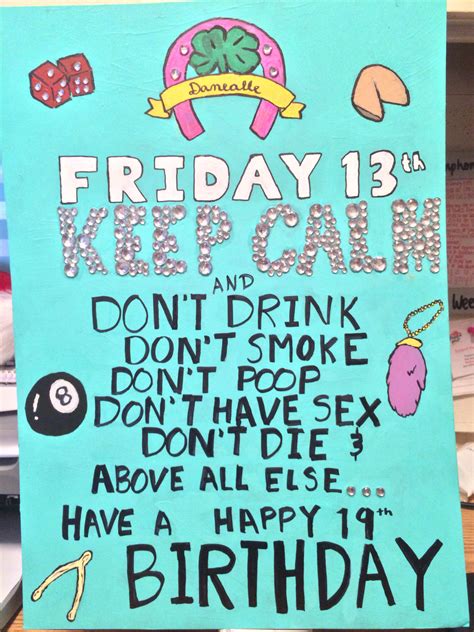 Danealle
FRIDAY 13th
KEEP CALM
AND
DON'T DRINK
DON'T SMOKE
DON'T POOP
DON'T HAVE SEX
DON'T DIE &
ABOVE ALL ELSE...
HAVE A HAPPY 19th
BIRTHDAY
8